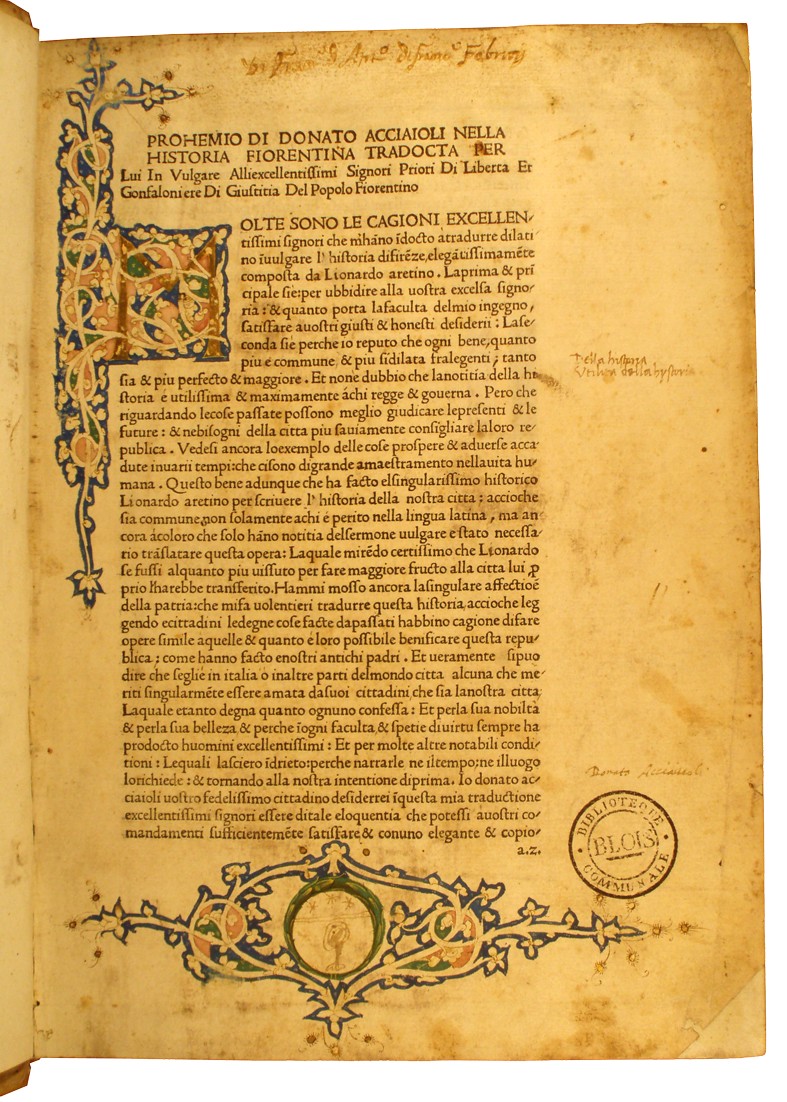 PROHEMIO DI DONATO ACCIAIOLI NELLA
HISTORIA FIORENTINA TRADOCTA PER
Lui In Vulgare Alliexcellentiſſimi Signori Priori Di Liberta Et
Gonfaloniere Di Giuſtitia Del Popolo Fiorentino
MOLTE SONO LE CAGIONI EXCELLEN/
tiſſimi ſignori che m'hāno īdocto atradurre dilati
no īuulgare l'historia difirēze, elegātiſſimamēte
compoſta da Lionardo aretino . Laprima & prī
cipale ſie: per ubbidire alla uoſtra excelſa ſigno/
ria : & quanto porta lafaculta delmio ingegno,
ſatiſfare auoſtri giuſti & honeſti deſiderii : Laſe/
conda ſie perche io reputo che ogni bene, quanto
piu e commune, & piu ſidilata fralegenti ; tanto
ſia & piu perfecto & maggiore . Et none dubbio che lanotitia della hi
ſtoria e utiliſſima & maximamente áchi regge & gouerna . Pero che
riguardando lecoſe paſſate poſſono meglio giudicare lepreſenti & le
future : & nebiſogni della citta piu ſauiamente conſigliare laloro re/
publica . Vedeſi ancora loexemplo delle coſe proſpere & aduerſe acca/
dute inuarii tempi: che ciſono digrande amaeſtramento nellauita hu/
mana . Queſto bene adunque che ha facto elſingulariſſimo hiſtorico
Lionardo aretino per ſcriuere l'hiſtoria della noſtra citta : accioche
ſia commune, non ſolamente achi é perito nella lingua latina, ma an
cora ácoloro che ſolo hāno notitia delſermone uulgare e ſtato neceſſa/
rio tráſlatare queſta opera: Laquale mirēdo certiſſimo che Lionardo
ſe fuſſi alquanto piu uiſſuto per fare maggiore fructo alla citta lui ꝓ
prio lharebbe tranſferito. Hammi moſſo ancora laſingulare affectioē
della patria: che mifa uolentieri tradurre queſta hiſtoria, accioche leg
gendo ecittadini ledegne coſe facte dapaſſati habbino cagione difare
opere ſimile aquelle & quanto e loro poſſibile benificare queſta repu/
blica ; come hanno facto enoſtri antichi padri . Et ueramente ſipuo
dire che ſeglie in italia o inaltre parti delmondo citta alcuna che me/
riti ſingularmēte eſſere amata daſuoi cittadini, che ſia lanoſtra citta;
Laquale etanto degna quanto ognuno confeſſa : Et perla ſua nobiltà
& perla ſua belleza & perche īogni faculta, & ſpetie diuirtu ſempre ha
prodocto huomini excellentiſſimi : Et per molte altre notabili condi/
tioni : Lequali laſciero īdrieto: perche narrarle ne iltempo; ne illuogo
lorichiede : & tornando alla noſtra intentione diprima. Io donato ac/
ciaioli uoſtro fedeliſſimo cittadino deſiderrei īqueſta mia traductione
excellentiſſimi ſignori eſſere ditale eloquentia che poteſſi auoſtri co/
mandamenti ſufficientemēte ſatiſfare, & conuno elegante & copio/
a.z.
Della hyſtoria
Utilita della hyſtoria
Donato Acciaioli
BIBLIOTEQUE
BLOIS
COMMUNALE